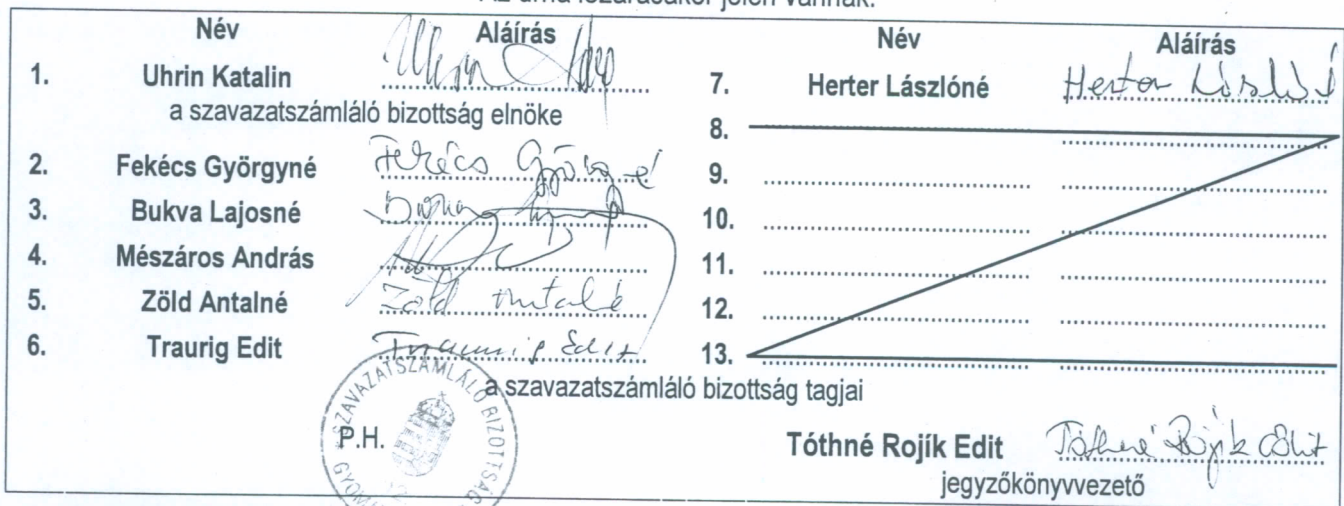 Az urna lezárásakor jelen vannak:
Név Aláírás
1. Uhrin Katalin
a szavazatszámláló bizottság elnöke
2. Fekécs Györgyné Fekécs Györgyné
3. Bukva Lajosné
4. Mészáros András
5. Zöld Antalné Zöld Antalné
6. Traurig Edit Traurig Edit
Név Aláírás
7. Herter Lászlóné Herter Lászlóné
8.
9.
10.
11.
12.
13.
a szavazatszámláló bizottság tagjai
P.H.
SZAVAZATSZÁMLÁLÓ BIZOTTSÁG
Tóthné Rojík Edit Tóthné Rojík Edit
jegyzőkönyvvezető